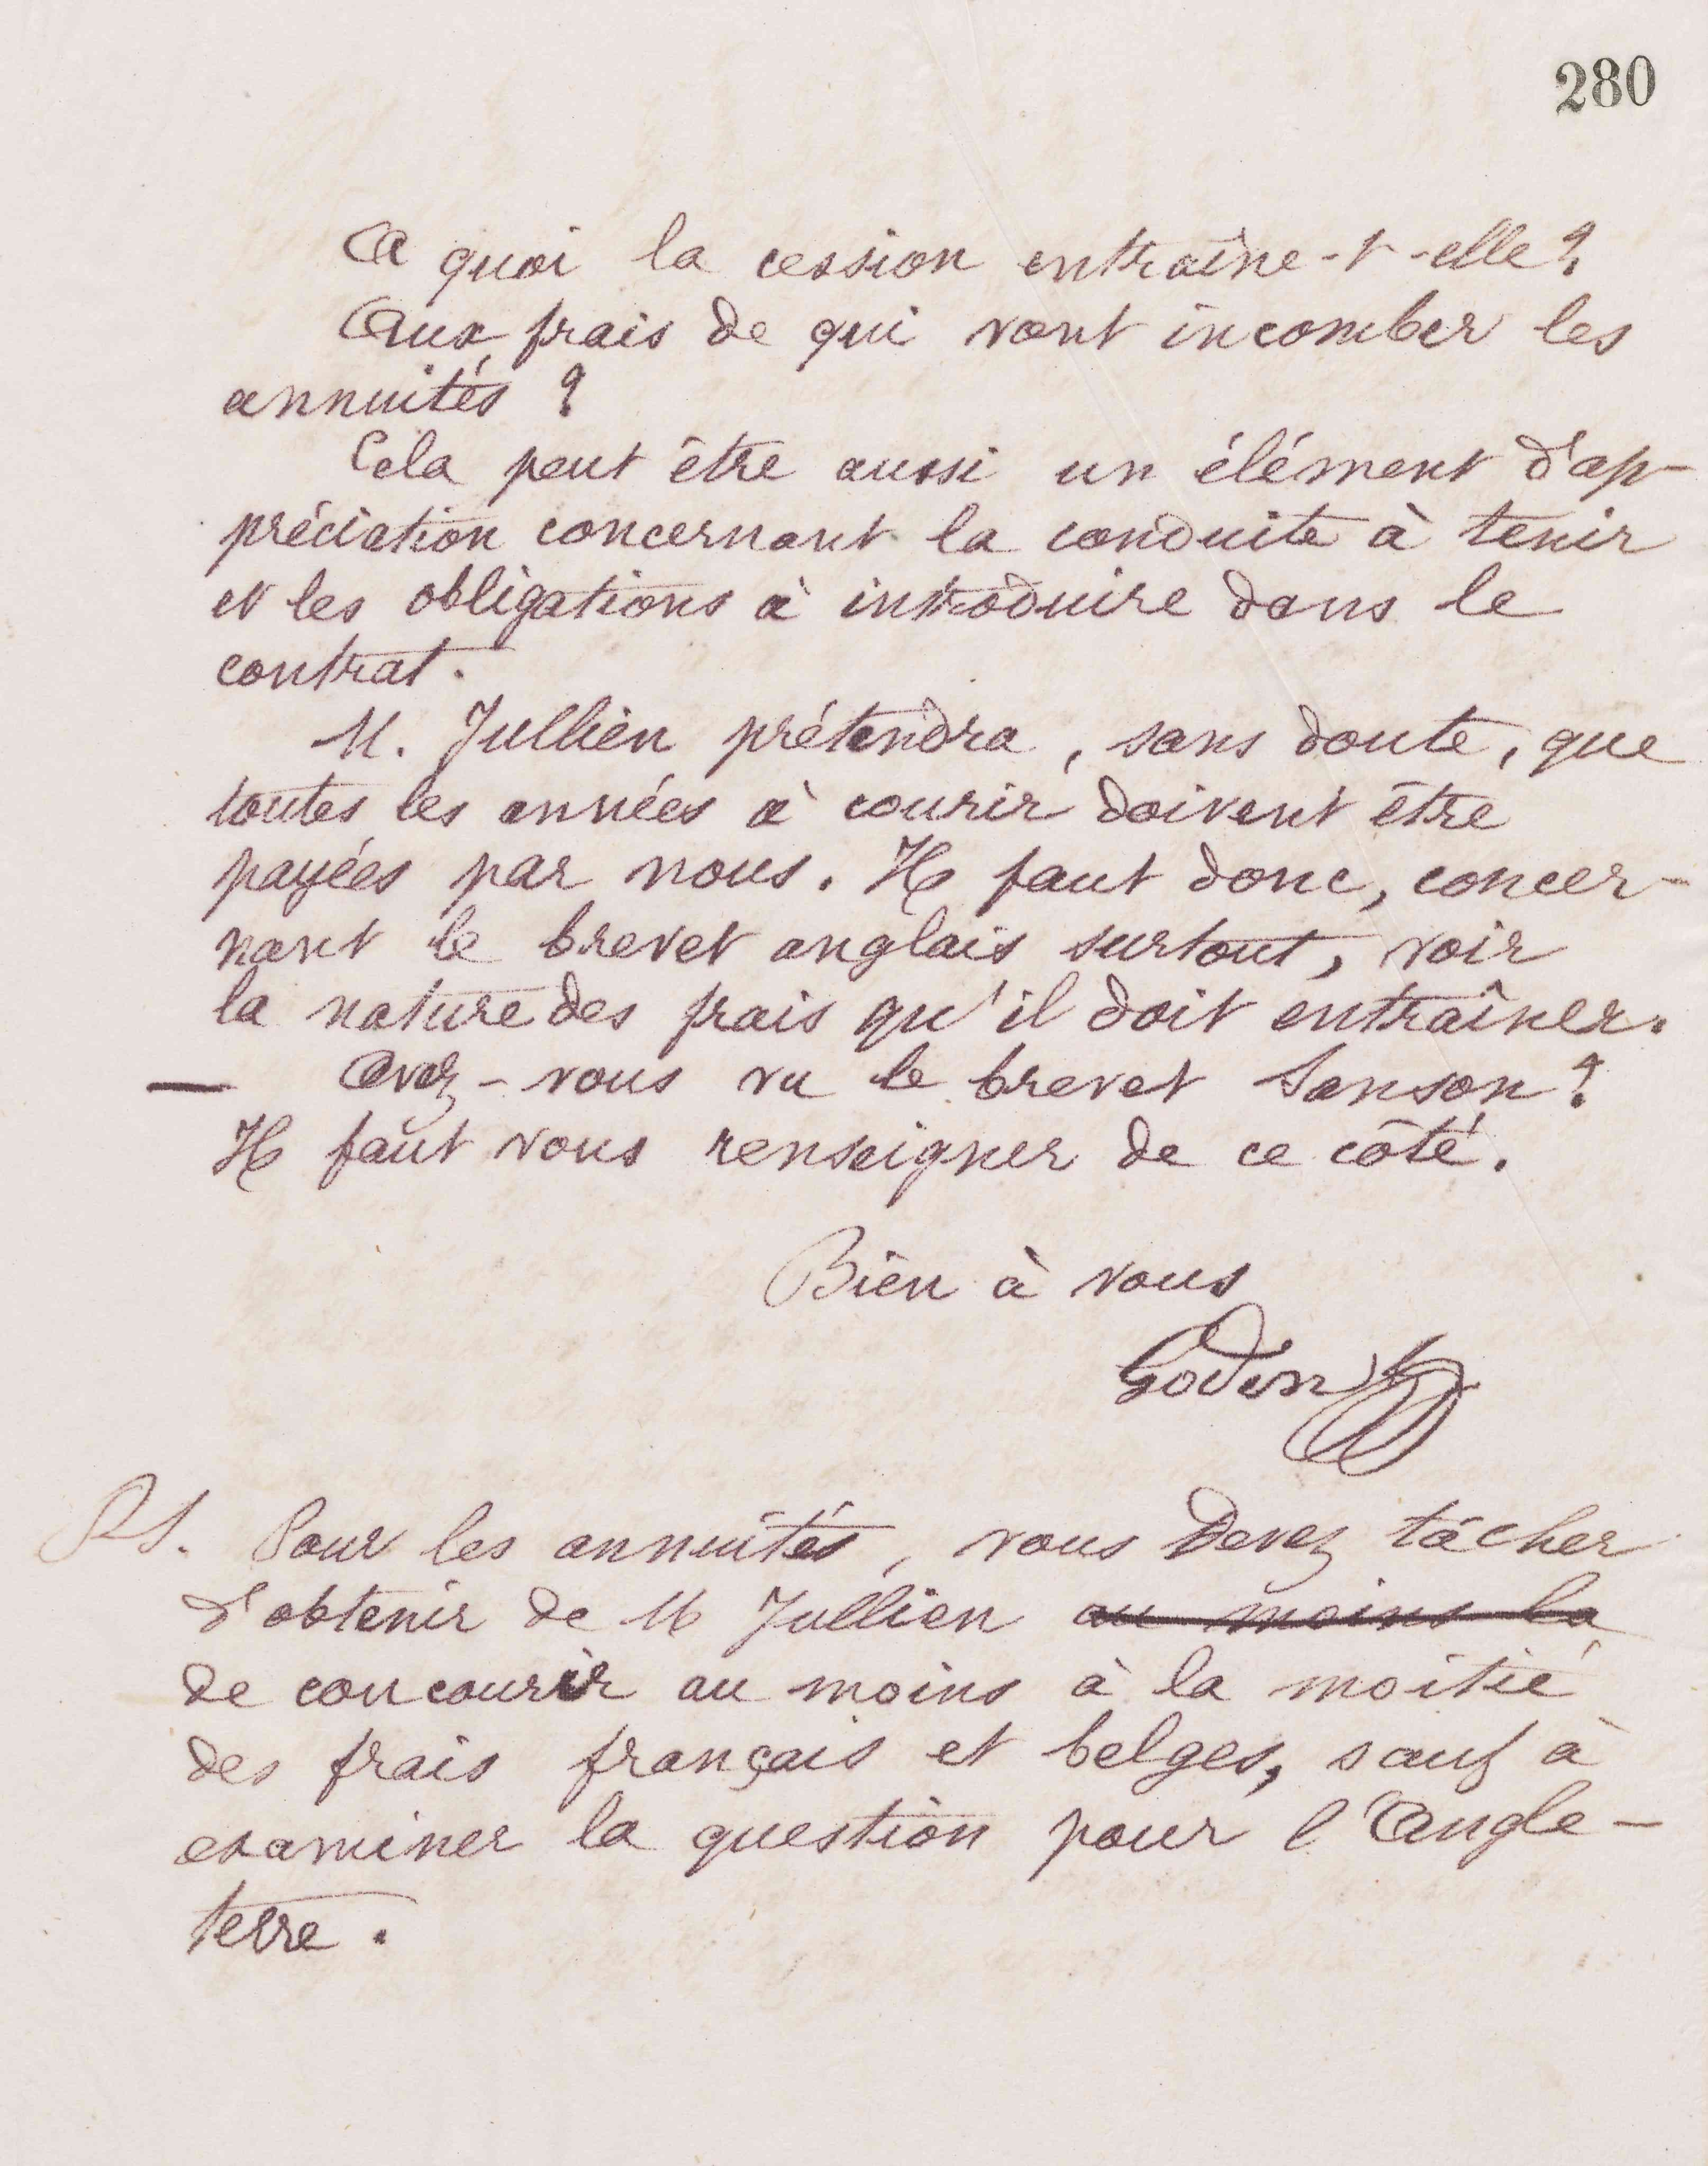 280
A quoi la cession entraîne-t-elle ?
Aux frais de qui vont incomber les
annuités ?
Cela peut être aussi un élément d'ap-
préciation concernant la conduite à tenir
et les obligations à introduire dans le
contrat.
M. Jullien prétendra, sans doute, que
toutes les années à courir doivent être
payées par nous. Il faut donc, concer-
nant le brevet anglais surtout, voir
la nature des frais qu'il doit entraîner.
— Avez-vous vu le brevet Sanson ?
Il faut vous renseigner de ce côté.
Bien à vous
Godin
PS. Pour les annuités, vous devez tâcher
d'obtenir de M Jullien au moins la
de concourir au moins à la moitié
des frais français et belges, sauf à
examiner la question pour l'Angle-
terre.